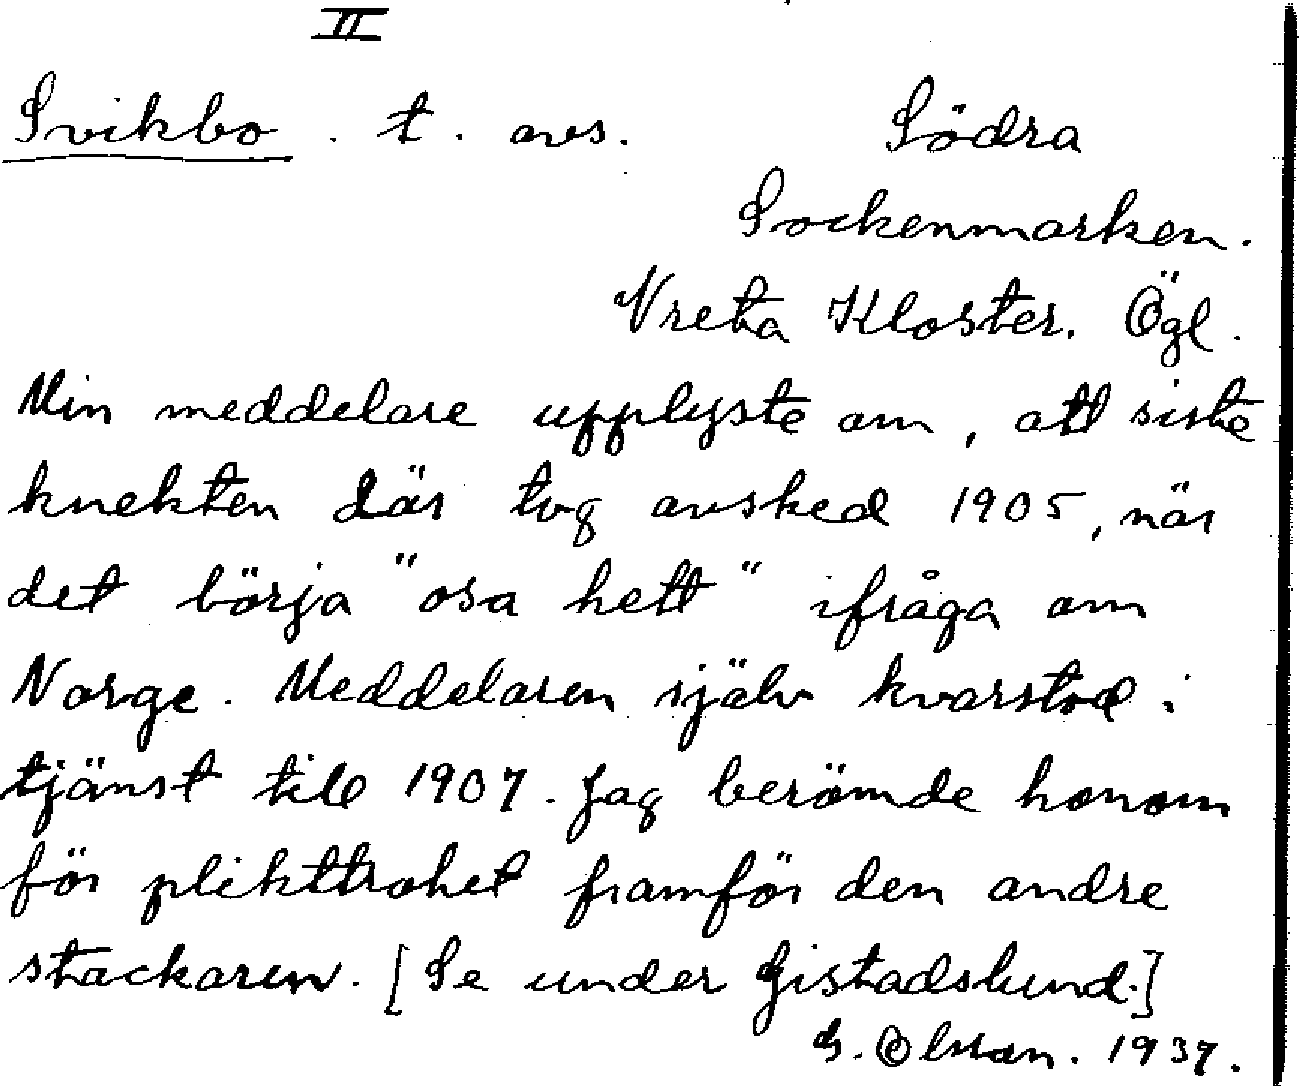 II
Svikbo. t. avs. Södra
Sockenmarken.
Vreta Kloster. Ögl.
Min meddelare upplyste om, att siste
knekten där tog avsked 1905, när
det börja "osa hett" ifråga om
Norge. Meddelaren själv kvarstod i
tjänst till 1907. Jag berömde honom
för plikttrohet framför den andre
stackaren. [Se under Gistadslund.]
G. Olsson. 1937.